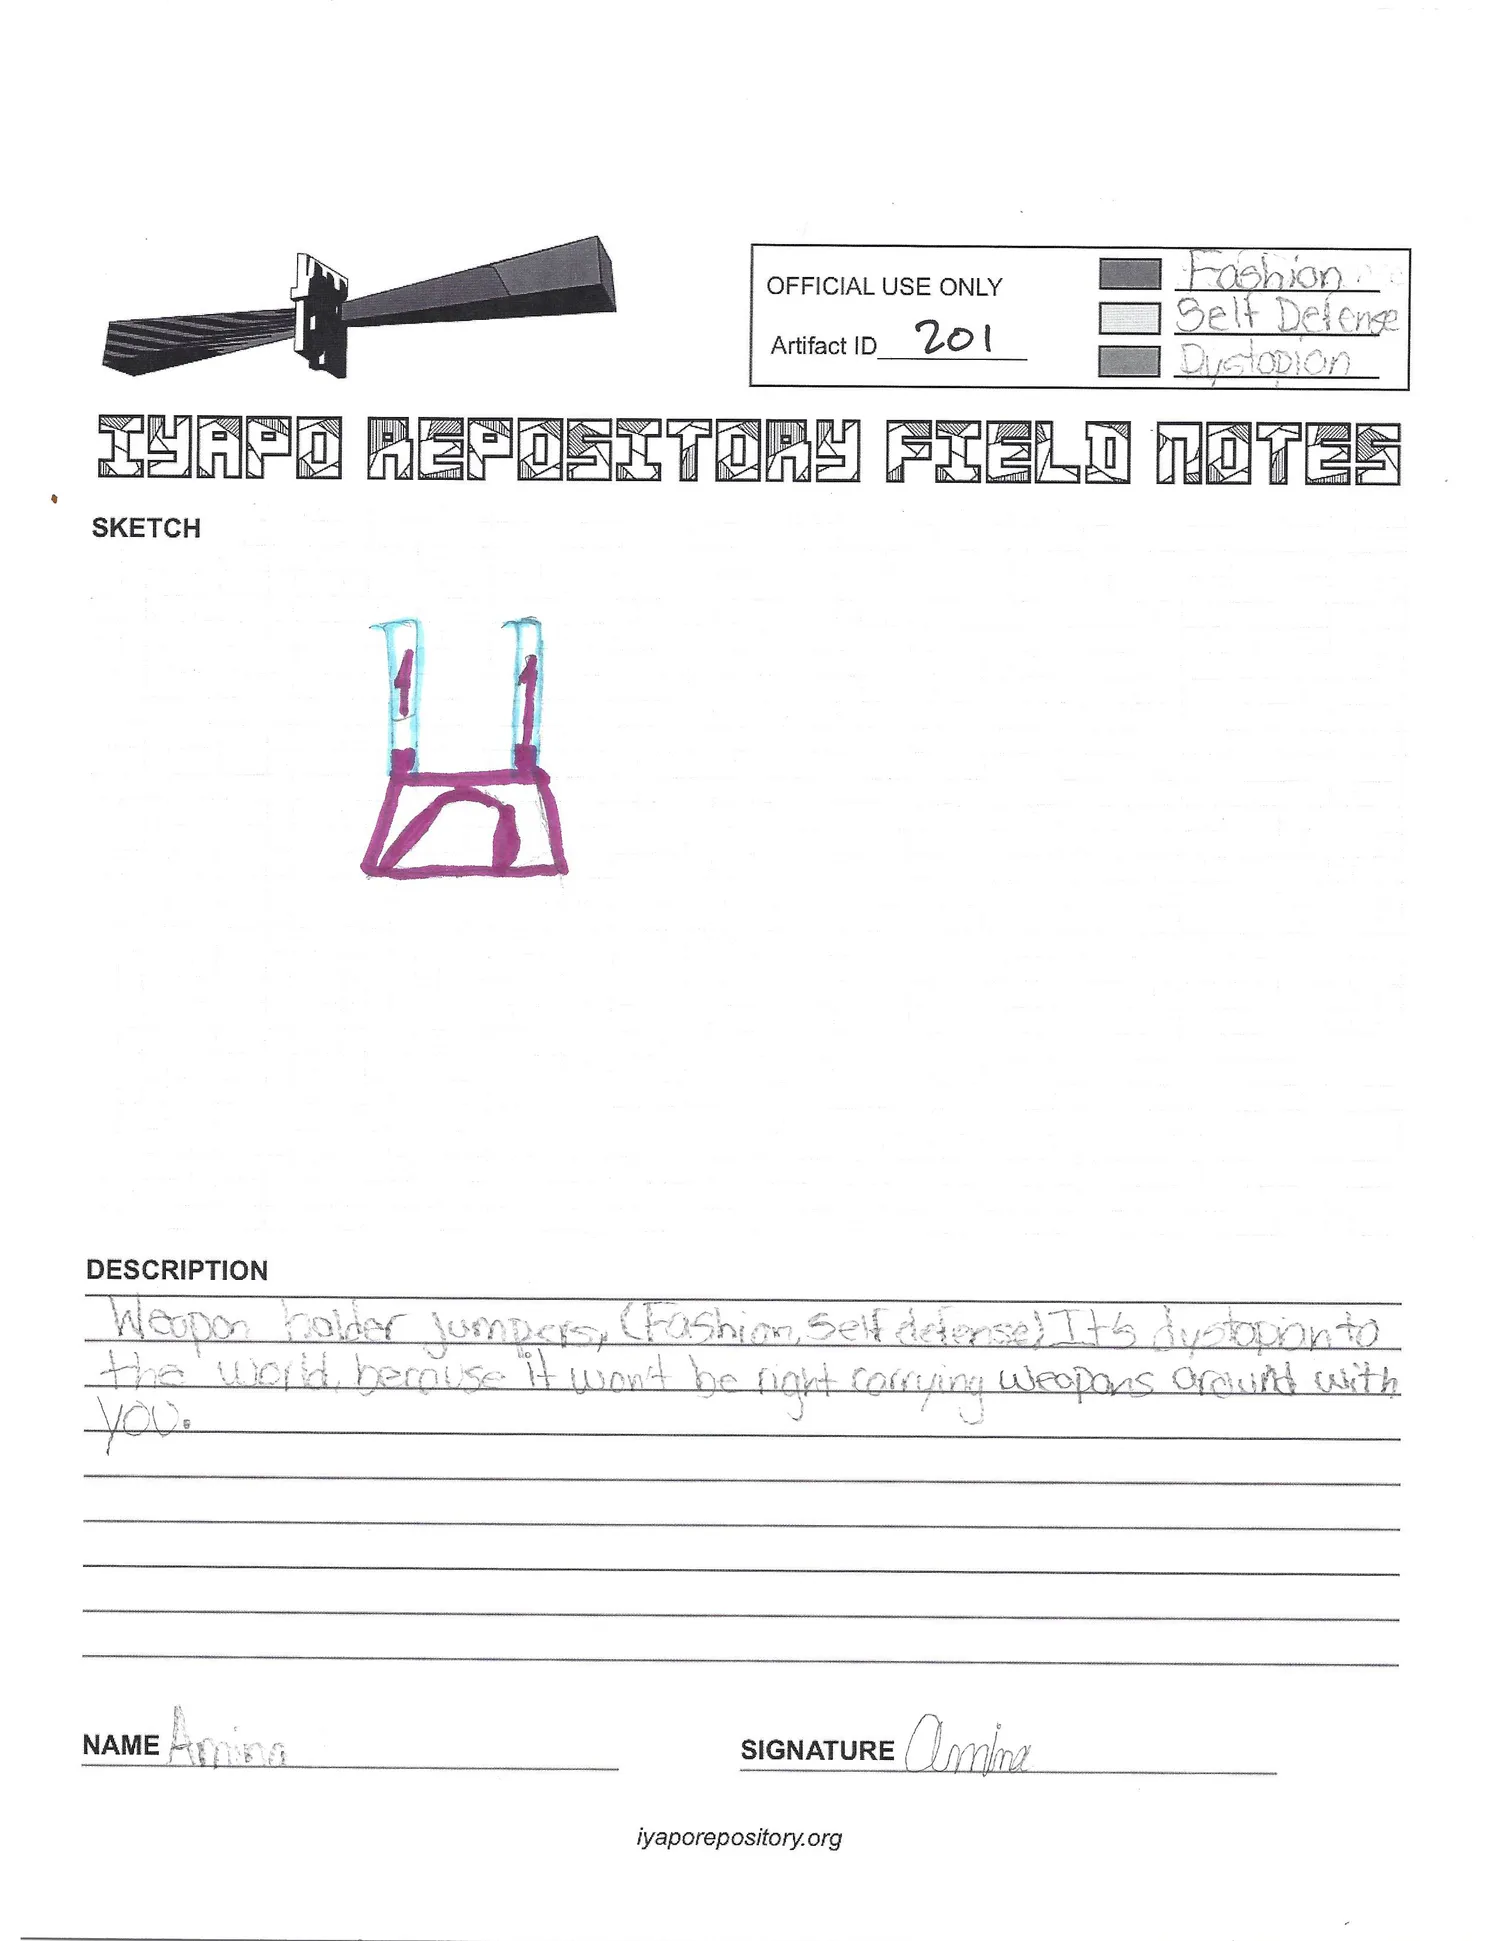 OFFICIAL USE ONLY
Artifact ID 201
Fashion
Self Defense
Dystopian
IYAPO REPOSITORY FIELD NOTES
SKETCH
1 1
DESCRIPTION
Weapon holder jumpers, (Fashion, Self defense) It's dystopian to
the world, because it won't be right carrying weapons around with
you.
NAME Amina
SIGNATURE Amina
iyaporepository.org